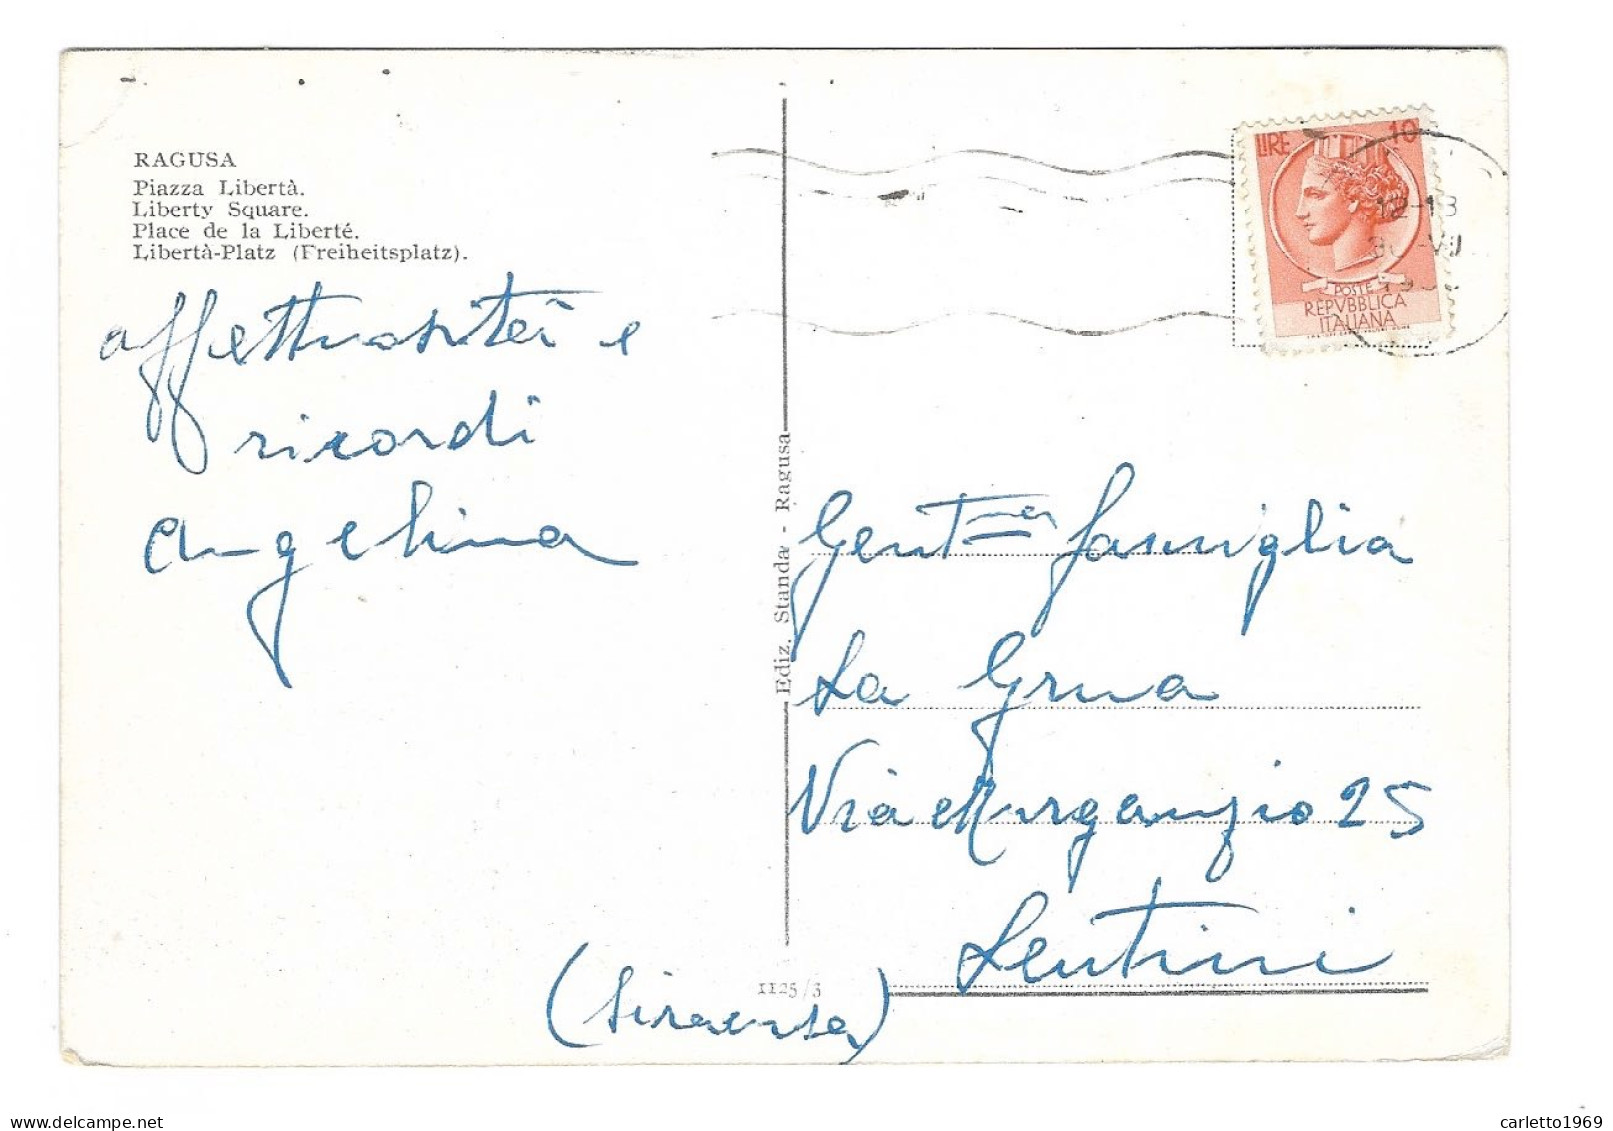 RAGUSA
Piazza Libertà.
Liberty Square.
Place de la Liberté.
Libertà-Platz (Freiheitsplatz).
affettuosità e
ricordi
Angelina
Ediz. Standa - Ragusa
1125/3
LIRE 10
POSTE
REPVBBLICA
ITALIANA
12-13
30-VII
Gent.ma famiglia
La Grua
Via Murganzio 25
Lentini
(Siracusa)
carletto1969